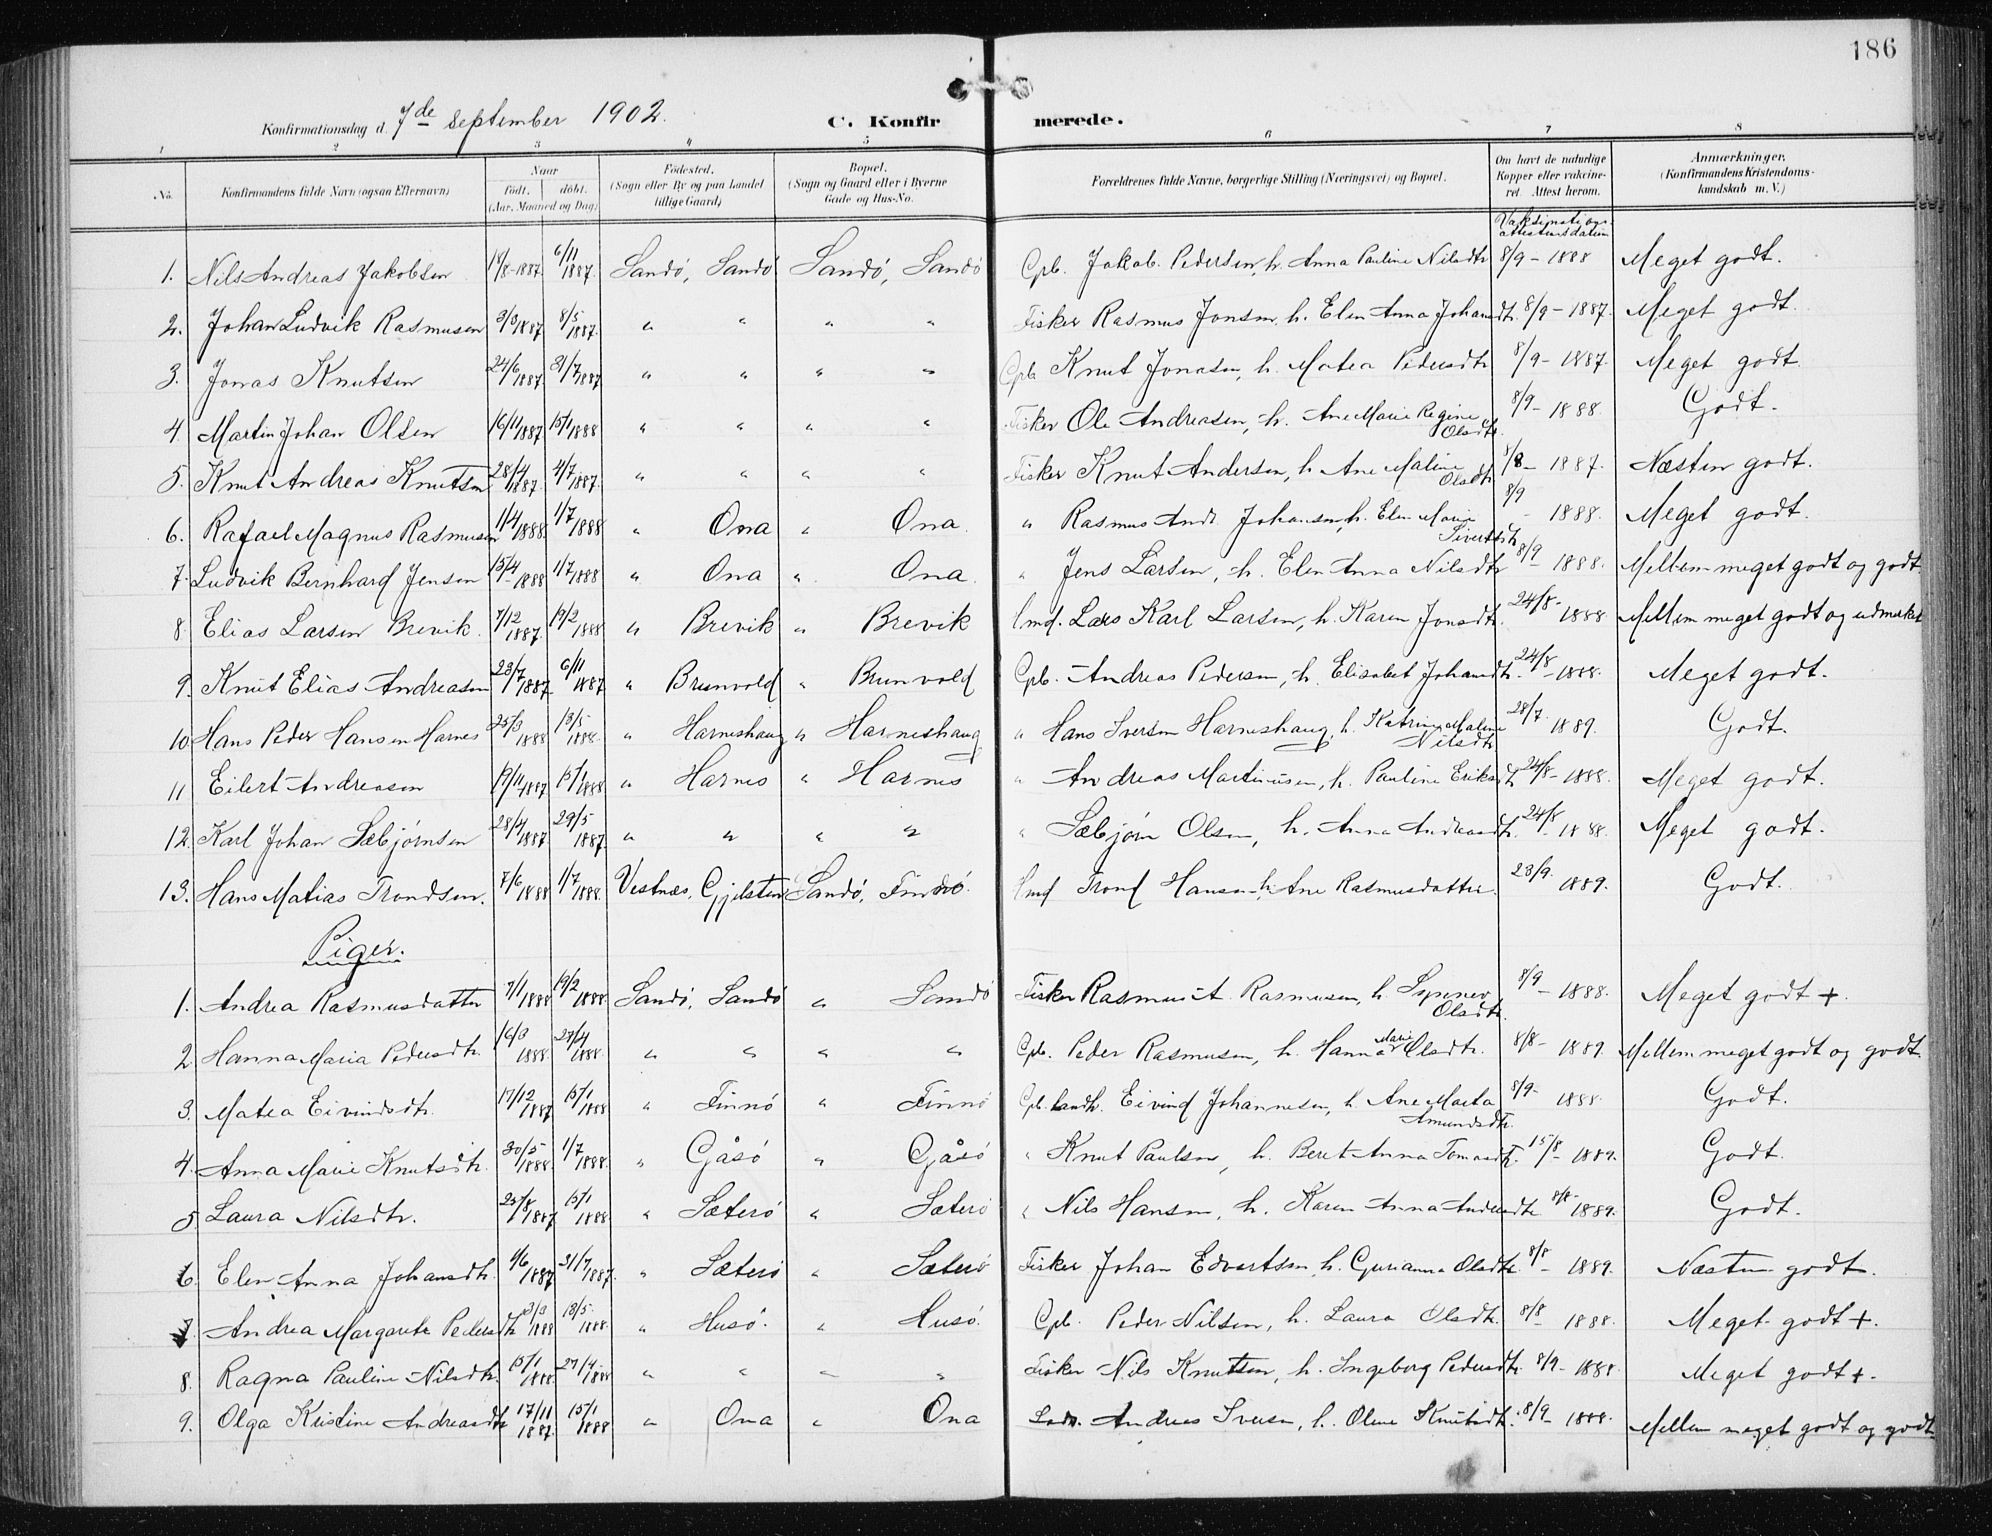 186
Konfirmationsdag d. 7de september 1902. C. Konfirmerede.
1 2 3 4 5 6 7 8
No. Konfirmandens fulde Navn (ogsaa Efternavn) Naar födt. döbt. (Aar, Maaned og Dag) Födested. (Sogn eller By og paa Landet tillige Gaard) Bopæl. (Sogn og Gaard eller i Byerne Gade og Hus-No. Forældrenes fulde Navne, borgerlige Stilling (Næringsvei) og Bopæl. Om havt de naturlige Kopper eller vaccineret. Attest herom. Anmærkninger. (Konfirmandens Kristendomskundskab m. V.)
Vaksinationsattestensdatum
1. Nils Andreas Jakobsen 14/8-1887. 6/11 1887. Sandö, Sandö Sandö, Sandö Gpb. Jakob Pedersen, h. Anna Pauline Nilsdtr 8/9 - 1888 Meget godt.
2. Johan Ludvik Rasmusen 3/3 1887 8/5 1887. " " " " Fisker Rasmus Jonsen, h. Elen Anna Johansdtr. 8/9 - 1887. Meget godt.
3. Jonas Knutsen 24/6 1887. 31/7 1887 " " " " Gpb. Knut Jonasen, h. Matea Pedersdtr 8/9 - 1887. Meget godt.
4. Martin Johan Olsen 16/11 1887 15/1 1888 " " " " Fisker Ole Andreasen, h. Ane Marie Regine Olsdtr. 8/9 - 1888. Godt.
5. Knut Andreas Knutsen 28/4 1887. 4/7 1887. " " " " Fisker Knut Andersen, h. Ane Maline Olsdtr 8/8 - 1887. Næsten godt.
6. Rafael Magnus Rasmusen 1/4 1888. 1/7 1888 " Ona " Ona. " Rasmus Andr. Johansen, h. Elen Marie Sivertsdtr 8/9 - 1888. Meget godt.
7. Ludvik Bernhard Jensen 15/4 1888 1/7 1888 " Ona " Ona. " Jens Larsen, h. Elen Anna Nilsdtr 8/9 - 1888. Mellem meget godt og godt
8. Elias Larsen Brevik. 7/12 1887. 19/2 1888 " Brevik " Brevik Imd. Lars Karl Larsen, h. Karen Jonsdtr. 24/8 - 1888 Mellem meget godt og udmerket
9. Knut Elias Andreasen 23/7 1887 6/11 1887 " Brunvold " Brunvold Gpb. Andreas Pedersen, h. Elisabet Johansdtr. 24/8 - 1888. Meget godt.
10 Hans Peder Hansen Harnes 25/3 1888 13/5 1888. " Harneshaug " Harneshaug " Hans Iversen Harneshaug, h. Katrine Maline Nilsdtr 28/7. 1889. Godt.
11 Eilert Andreasen 19/11 1887 15/1 1888 " Harnes " Harnes " Andreas Martinusen, h. Pauline Eriksdtr 24/8 - 1888. Meget godt.
12. Karl Johan Sæbjørnsen 28/4 1887. 29/5 1887. " " " " " Sæbjørn Olsen, h. Anna Andreasdtr. 24/8 - 1888. Meget godt.
13. Hans Matias Trondsen. 7/6 1888 1/7 1888. Vestnæs, Gjelsten Sandö, Finnö. Imd Trond Hansen, h. Ane Rasmusdatter. 23/9. 1889. Godt.
Piger.
1. Andrea Rasmusdatter 7/1 1888 19/2 1888. Sandö, Sandö " Sandö Fisker Rasmus A. Rasmusen, h. Synnev Olsdtr. 8/9 - 1888. Meget godt +.
2 Hanna Maria Pedersdtr. 16/3 1888. 27/4 1888. " " " " Gpb. Peder Rasmusen, h. Hanna Marie Olsdtr. 8/8 - 1889. Mellem meget godt og godt
3. Matea Eivindsdtr. 17/12 1887 15/1 1888 " Finnö " Finnö Gpb. Landh. Eivind Johannesen, h. Ane Marta Amundsdtr. 8/9 - 1888. Godt.
4. Anna Marie Knutsdtr. 30/5 1888. 1/7 1888. " Gåsö " Gåsö " Knut Paulsen, h. Beret Anna Tomasdtr. 15/8 - 1889. Godt.
5 Laura Nilsdtr. 25/8 1887 15/1 1888. " Sæterö " Sæterö " Nils Hansen, h. Karen Anna Andersdtr 8/8 - 1889. Godt.
6. Elen Anna Johansdtr. 9/6 1887 31/7 1887. " Sæterö " Sæterö Fisker Johan Edvartsen, h. Gurianna Olsdtr. 8/8 - 1889. Næsten godt.
7. Andrea Margrete Pedersdtr 3/3 1888 13/5 1888. " Husö. " Husö. Gpb. Peder Nilsen, h. Laura Olsdtr. 8/8 - 1888. Meget godt +.
8. Ragna Pauline Nilsdtr. 15/1 1888. 27/4 1888 " " " " Fisker Nils Knutsen, h. Ingeborg Pedersdtr. 8/9 - 1888. Meget godt +.
9. Olga Kristine Andreasdtr 17/11 1887. 15/1 1888 " Ona " Ona Andreas Iversen, h. Oline Knutsdtr. 8/9 - 1888. Mellem meget godt og godt.